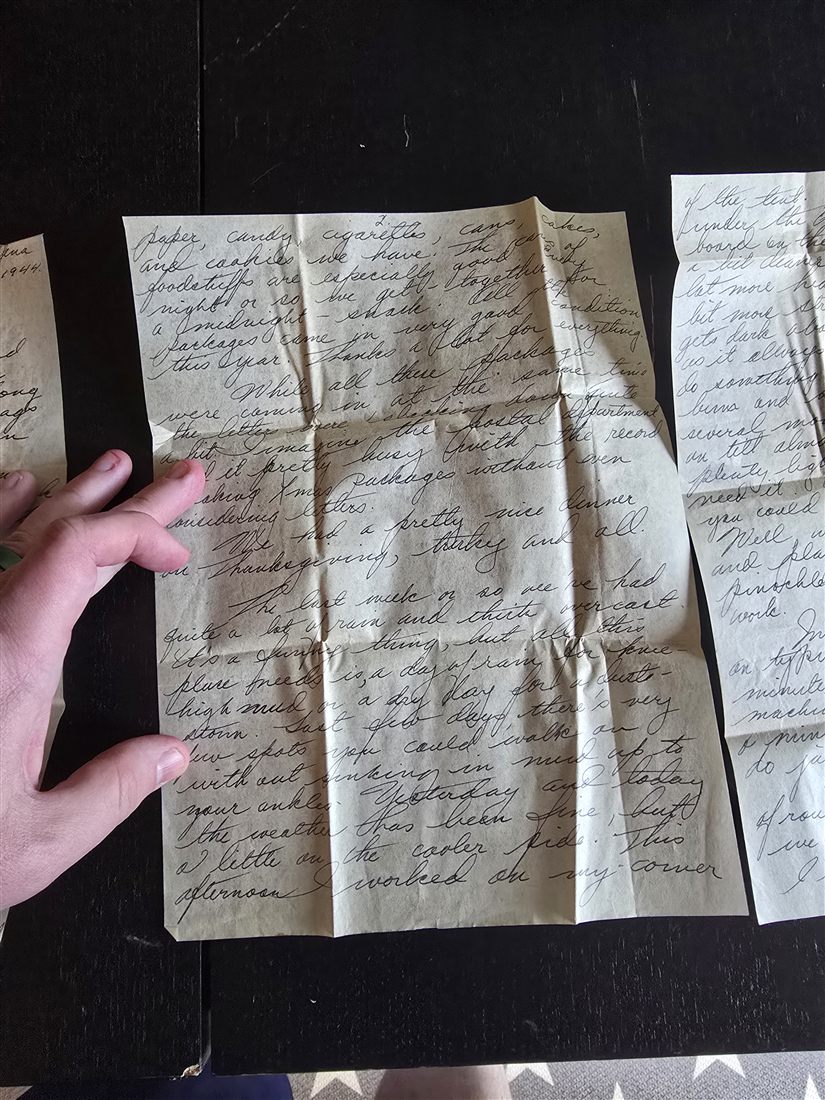 1944.
2
paper, candy, cigarettes, cans, cakes,
and cookies we have. The cans of
foodstuffs are especially good. Every
night or so we get together for
a midnight-snack. All
packages came in very good condition
this year. Thanks a lot for everything.
While all these packages
were coming in at the same time
the letters were slacking down quite
a bit. I imagine the Postal Department
it pretty busy with the record
Xmas packages without even
considering letters.
We had a pretty nice dinner
on Thanksgiving, turkey and all.
The last week or so we've had
quite a lot of rain and thick overcast.
It's a funny thing, but all this
place needs is, a day of rain for knee-
high mud or a dry day for a dust-
storm. Last few days there's very
few spots you could walk on
without sinking in mud up to
your ankles. Yesterday and today
the weather has been fine, but
a little on the cooler side. This
afternoon I worked on my corner
of the tent.
under the
board on the
a bit
lot more
bit more
gets dark
as it always
do something
several
on till
plenty
need it.
you could
Well
and
pinochle
work.
on
minute
do
of
we
I